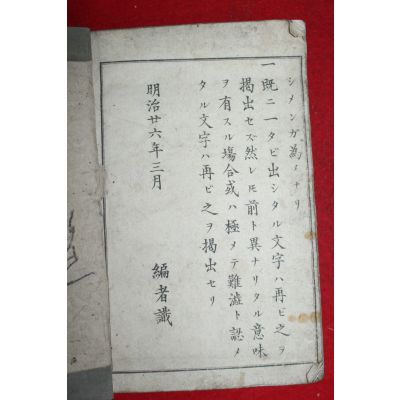 シメンガ為メナリ
一既ニ一タビ出シタル文字ハ再ビ之ヲ
揭出セズ然レ𪜈前ト異ナリタル意味
ヲ有スル塲合或ハ極メテ難澁ト認メ
タル文字ハ再ビ之ヲ揭出セリ
明治廿六年三月
編者識